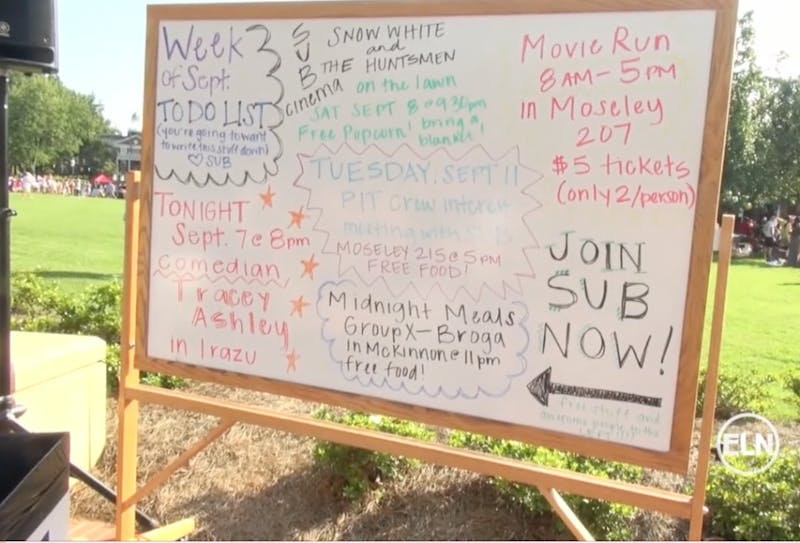 Week
of Sept.
TO DO LIST
(you're going to want
to write this stuff down)
♡ SUB
TONIGHT
Sept. 7 @ 8pm
comedian
Tracey
Ashley
in Irazu
SUB
cinema
SNOW WHITE
and
THE HUNTSMEN
on the lawn
SAT SEPT 8 @ 930pm
Free Popcorn! bring a
blanket!
TUESDAY, SEPT 11
PIT crew interest
meeting with SUB
MOSELEY 215 @ 5PM
FREE FOOD!
Midnight Meals
GroupX - Broga
in McKinnon @ 11pm
free food!
Movie Run
8AM - 5PM
in Moseley
207
$5 tickets
(only 2/person)
JOIN
SUB
NOW!
free stuff and
awesome people to the
ELN